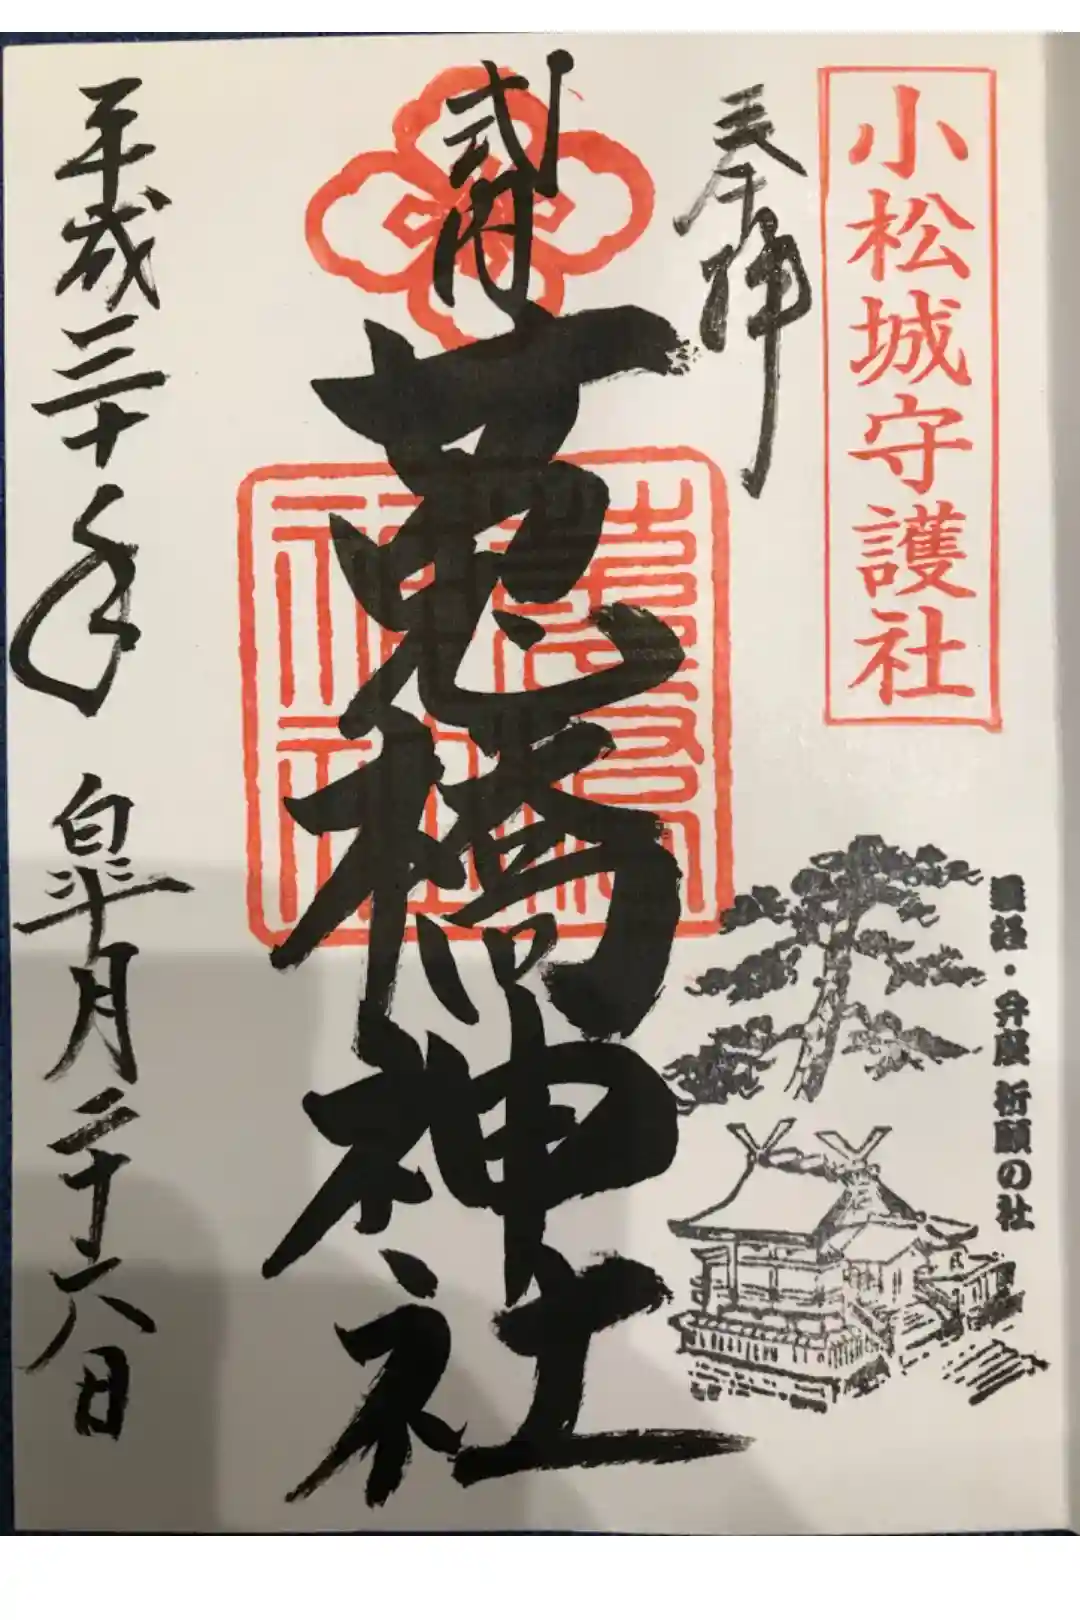 小松城守護社
義経・弁慶 祈願の社
奉拝
式内
莵橋神社
平成三十年 皐月二十六日